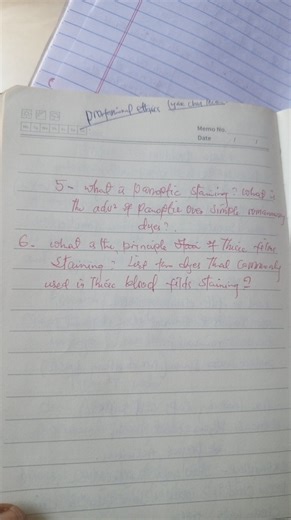 professional ethics
Memo No.
Date / /
5- what a panoptic staining? what is
the adv of panoptic over simple romanowsky
dyes?
6- what a the principle of Thick films
staining? List ten dyes that commonly
used in thick blood films staining?